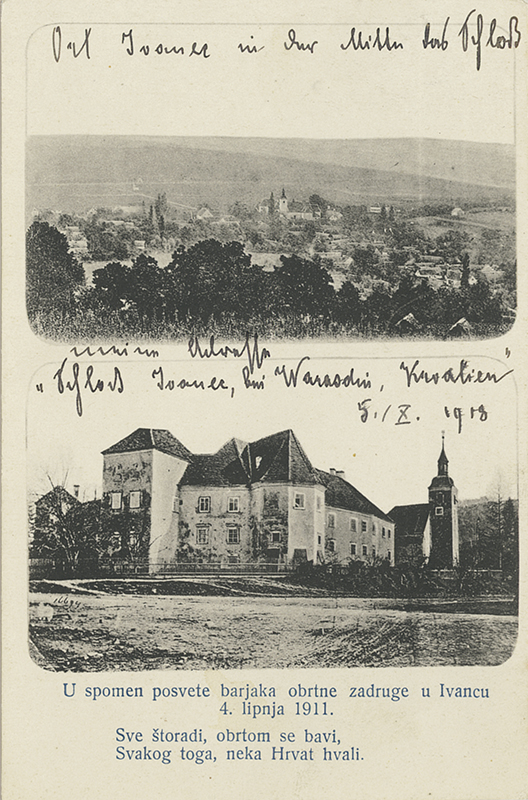 Ort Ivanec in der Mitte das Schloß
meine Adresse
"Schloß Ivanec, bei Warasdin, Kroatien"
5./X. 1918
U spomen posvete barjaka obrtne zadruge u Ivancu
4. lipnja 1911.
Sve štoradi, obrtom se bavi,
Svakog toga, neka Hrvat hvali.